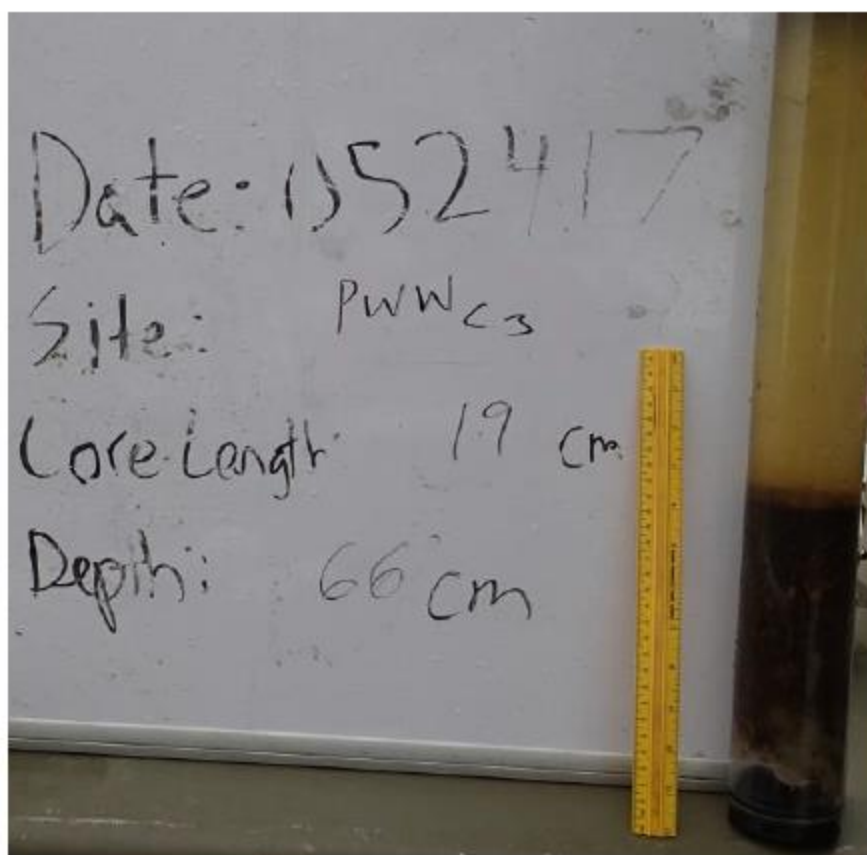 Date: 052417
Site: PWW C3
Core Length: 19 cm
Depth: 66 cm